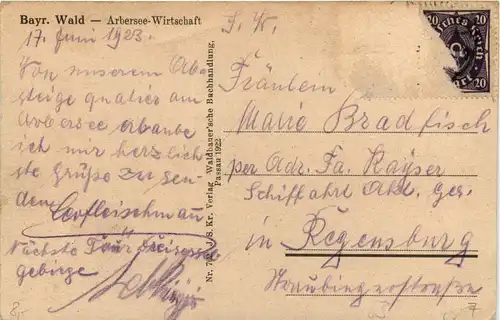 Bayr. Wald — Arbersee-Wirtschaft
17. Juni 1923.
Von unserem Ab-
steige quatier am
Arbersee erlaube
ich mir herzlich-
ste Grüße zu sen-
den
Nächste Tour
gebirge
S. Kr. Verlag Waldbauer'sche Buchhandlung,
Passau 1922
20 20
Deutsches Reich
20
Fräulein
Marie Bradfisch
per Adr. Fa. Kayser
Schiffahrt Akt. Ges.
in Regensburg
Straubingerstraße
7